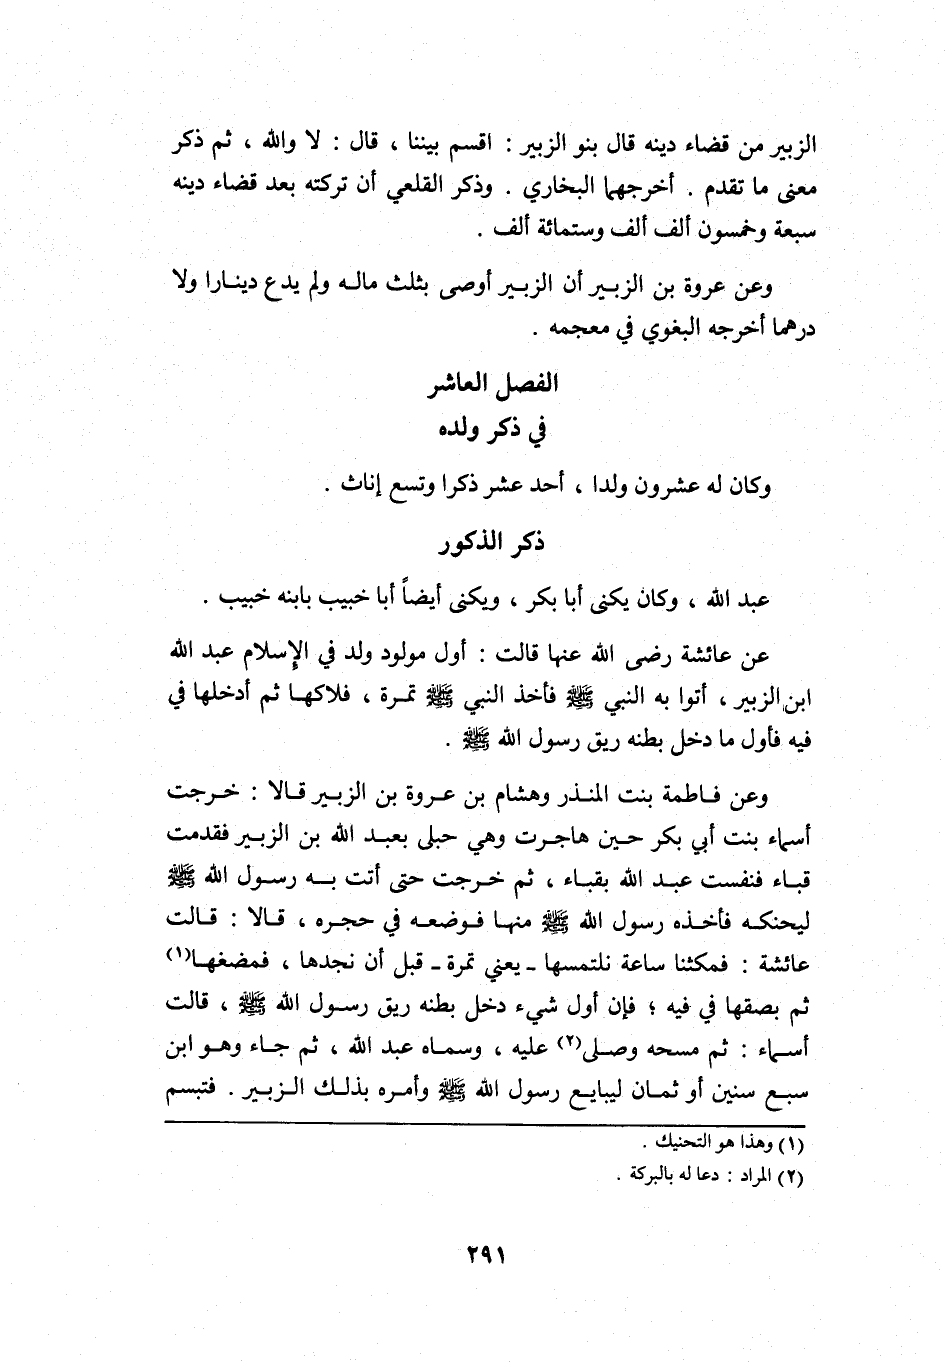 الزبير من قضاء دينه قال بنو الزبير : اقسم بيننا ، قال : لا والله ، ثم ذكر
معنى ما تقدم . أخرجهما البخاري . وذكر القلعي أن تركته بعد قضاء دينه
سبعة وخمسون ألف ألف وستمائة ألف .
وعن عروة بن الزبير أن الزبير أوصى بثلث ماله ولم يدع دينارا ولا
درهما أخرجه البغوي في معجمه .
الفصل العاشر
في ذكر ولده
وكان له عشرون ولدا ، أحد عشر ذكرا وتسع إناث .
ذكر الذكور
عبد الله ، وكان يكنى أبا بكر ، ويكنى أيضاً أبا خبيب بابنه خبيب .
عن عائشة رضى الله عنها قالت : أول مولود ولد في الإسلام عبد الله
ابن الزبير ، أتوا به النبي ﷺ فأخذ النبي ﷺ تمرة ، فلاكها ثم أدخلها في
فيه فأول ما دخل بطنه ريق رسول الله ﷺ .
وعن فاطمة بنت المنذر وهشام بن عروة بن الزبير قالا : خرجت
أسماء بنت أبي بكر حين هاجرت وهي حبلى بعبد الله بن الزبير فقدمت
قباء فنفست عبد الله بقباء ، ثم خرجت حتى أتت به رسول الله ﷺ
ليحنكه فأخذه رسول الله ﷺ منها فوضعه في حجره ، قالا : قالت
عائشة : فمكثنا ساعة نلتمسها - يعني تمرة - قبل أن نجدها ، فمضغها(١)
ثم بصقها في فيه ؛ فإن أول شيء دخل بطنه ريق رسول الله ﷺ ، قالت
أسماء : ثم مسحه وصلى(٢) عليه ، وسماه عبد الله ، ثم جاء وهو ابن
سبع سنين أو ثمان ليبايع رسول الله ﷺ وأمره بذلك الزبير . فتبسم
(١) وهذا هو التحنيك .
(٢) المراد : دعا له بالبركة .
٢٩١